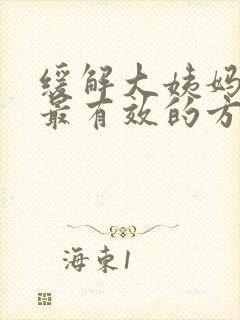 缓解大姨妈
最有效的方
海束1